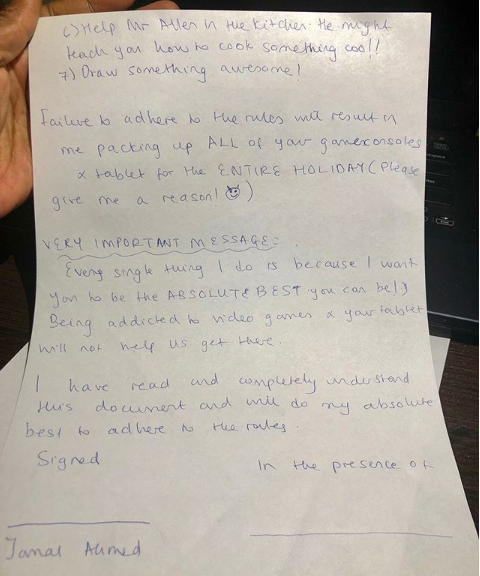 6) Help Mr Allen in the kitchen. He might
teach you how to cook something cool!!
7) Draw something awesome!
Failure to adhere to the rules will result in
me packing up ALL of your game consoles
& tablet for the ENTIRE HOLIDAY (Please
give me a reason! 😈)
VERY IMPORTANT MESSAGE:
Every single thing I do is because I want
you to be the ABSOLUTE BEST you can be!)
Being addicted to video games & your tablet
will not help us get there.
I have read and completely understand
this document and will do my absolute
best to adhere to the rules.
Signed
In the presence of
Jamal Ahmed